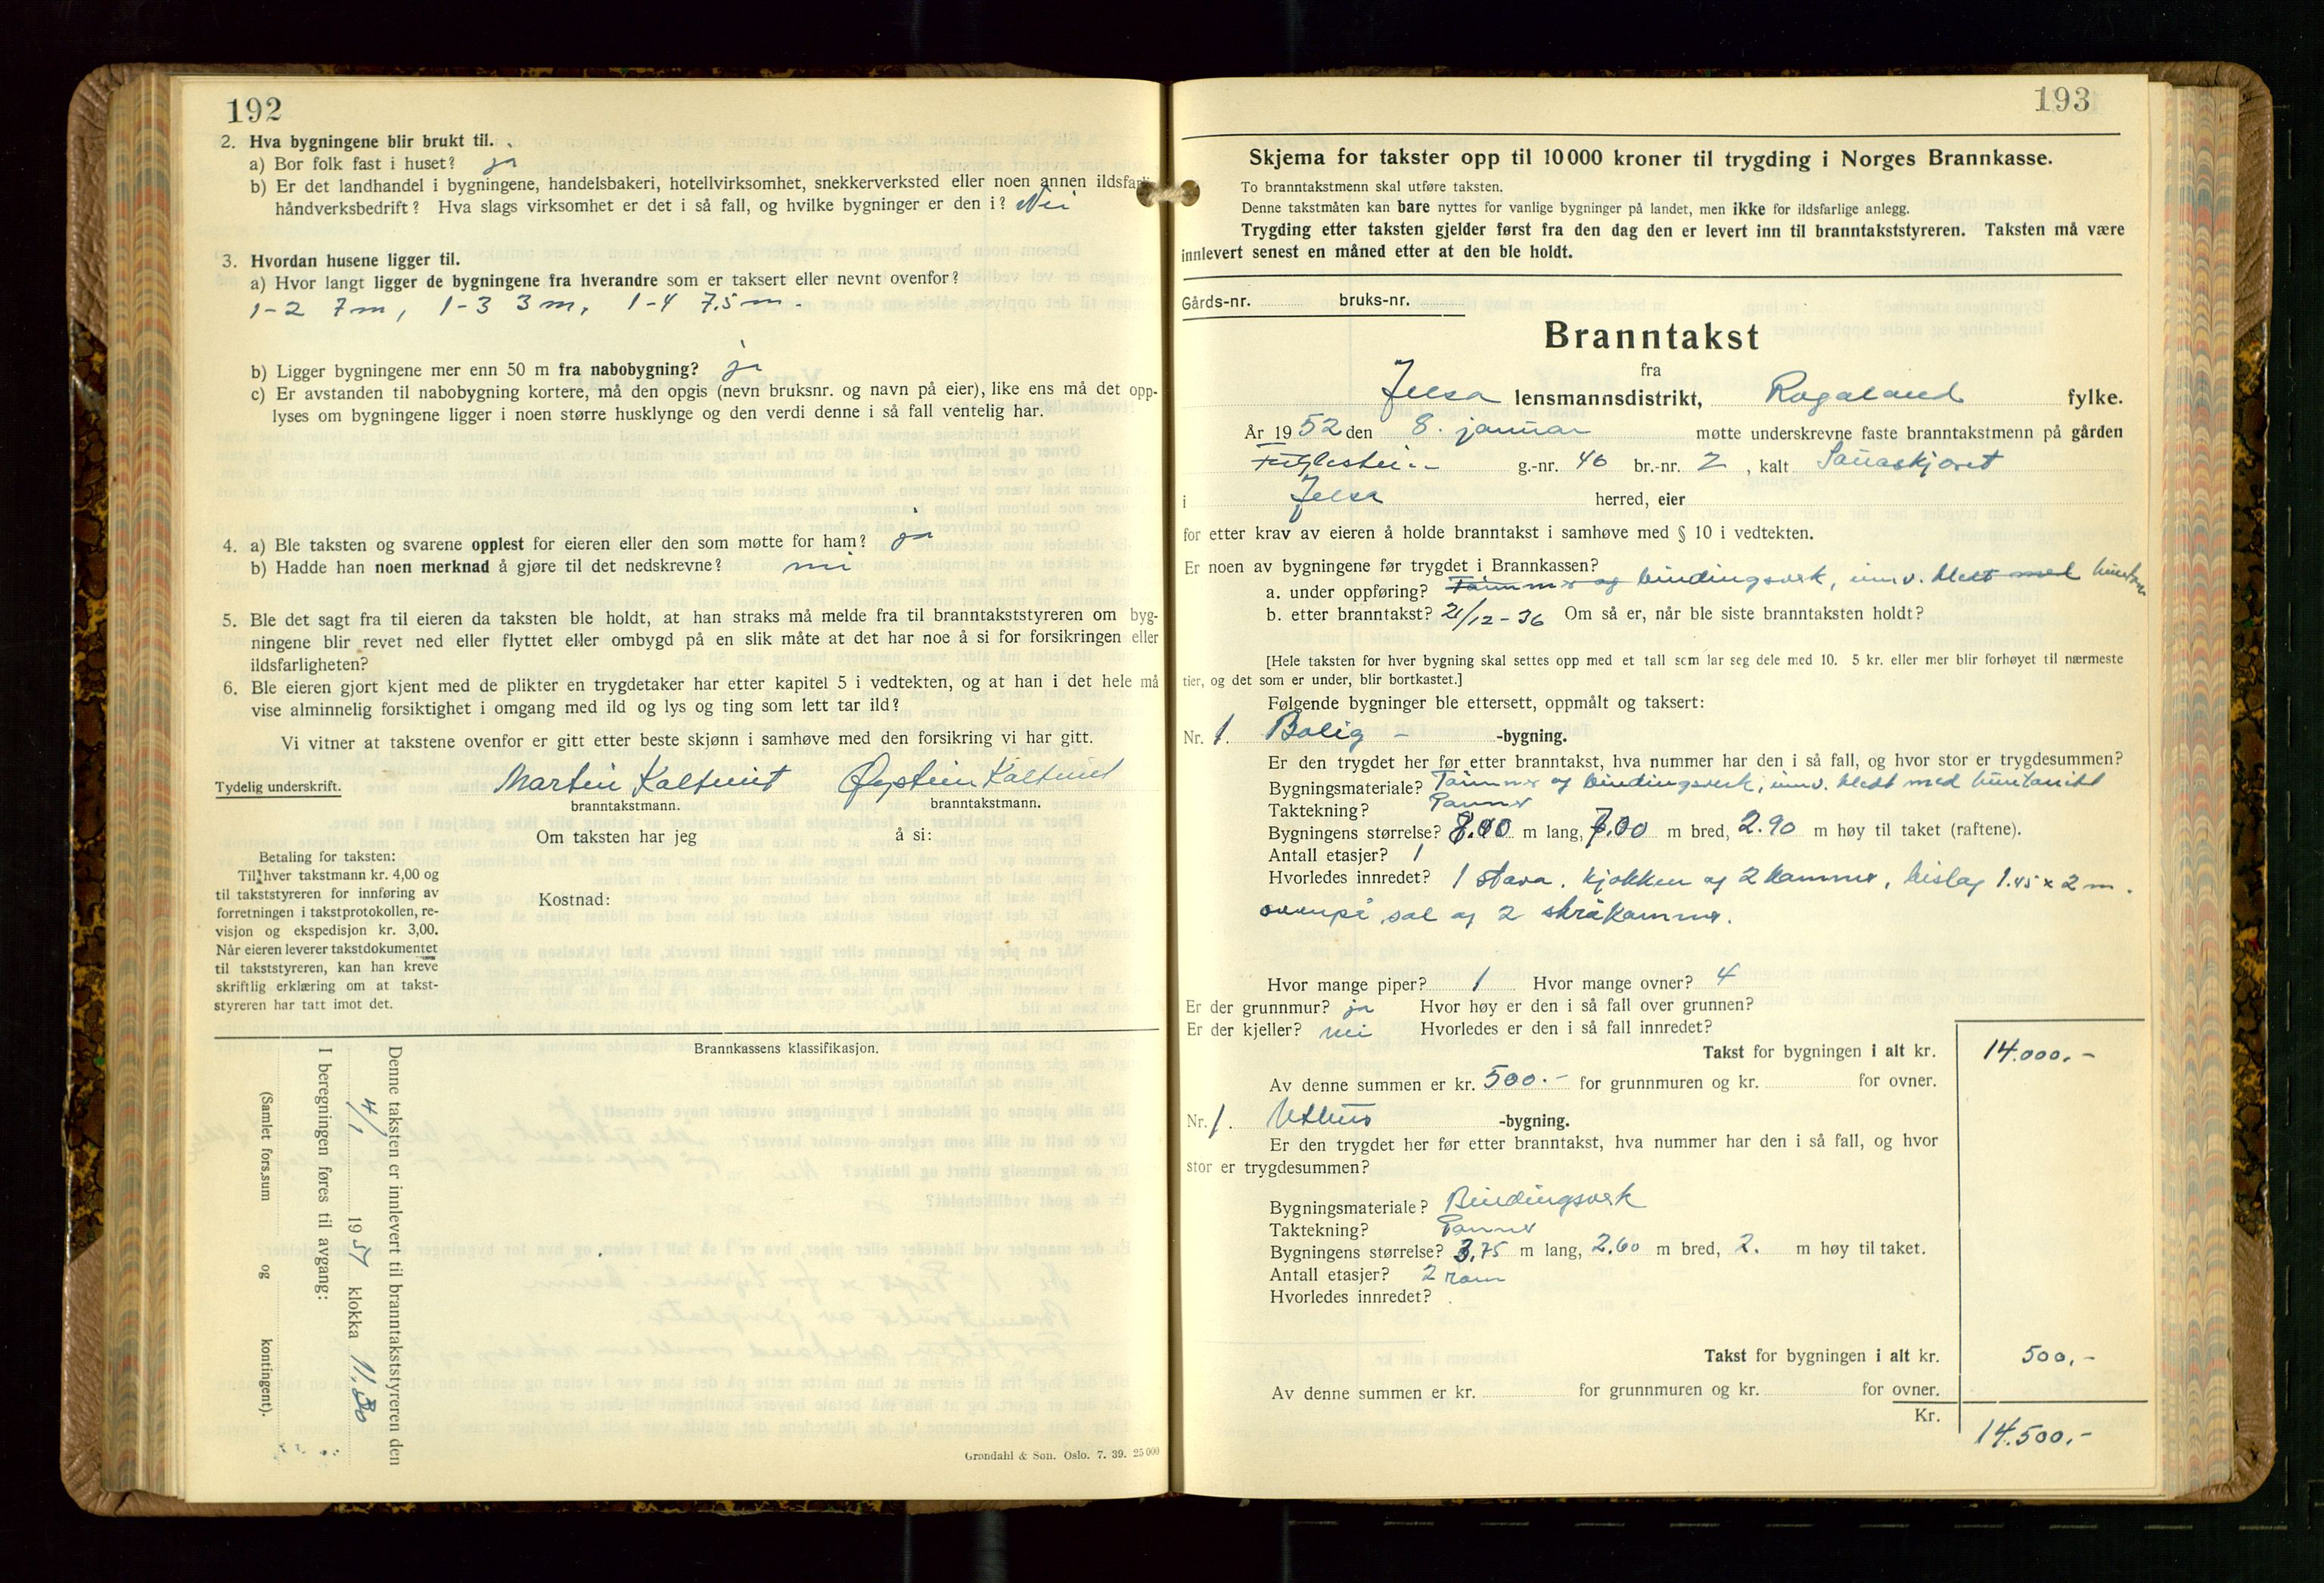 192
2. Hva bygningene blir brukt til.
a) Bor folk fast i huset? ja
b) Er det landhandel i bygningene, handelsbakeri, hotellvirksomhet, snekkerverksted eller noen annen ildsfarlig
håndverksbedrift? Hva slags virksomhet er det i så fall, og hvilke bygninger er den i? Nei
3. Hvordan husene ligger til.
a) Hvor langt ligger de bygningene fra hverandre som er taksert eller nevnt ovenfor?
1-2 7 m, 1-3 3 m, 1-4 7,5 m.
b) Ligger bygningene mer enn 50 m fra nabobygning? ja
c) Er avstanden til nabobygning kortere, må den opgis (nevn bruksnr. og navn på eier), like ens må det opp-
lyses om bygningene ligger i noen større husklynge og den verdi denne i så fall ventelig har.
4. a) Ble taksten og svarene opplest for eieren eller den som møtte for ham? ja
b) Hadde han noen merknad å gjøre til det nedskrevne? nei
5. Ble det sagt fra til eieren da taksten ble holdt, at han straks må melde fra til branntakststyreren om byg-
ningene blir revet ned eller flyttet eller ombygd på en slik måte at det har noe å si for forsikringen eller
ildsfarligheten?
6. Ble eieren gjort kjent med de plikter en trygdetaker har etter kapitel 5 i vedtekten, og at han i det hele må
vise alminnelig forsiktighet i omgang med ild og lys og ting som lett tar ild?
Vi vitner at takstene ovenfor er gitt etter beste skjønn i samhøve med den forsikring vi har gitt.
Tydelig underskrift. Martin Kaltveit Øystein Kaltveit
branntakstmann. branntakstmann.
Om taksten har jeg å si:
Betaling for taksten:
Til hver takstmann kr. 4,00 og
til takststyreren for innføring av
forretningen i takstprotokollen, re-
visjon og ekspedisjon kr. 3,00.
Når eieren leverer takstdokumentet
til takststyreren, kan han kreve
skriftlig erklæring om at takst-
styreren har tatt imot det.
Kostnad:
Brannkassens klassifikasjon.
Denne taksten er innlevert til branntakststyreren den
4/1 1957 klokka 11,30
I beregningen føres til avgang:
(Samlet fors.sum og kontingent).
Grøndahl & Son. Oslo. 7. 39. 25 000
193
Skjema for takster opp til 10 000 kroner til trygding i Norges Brannkasse.
To branntakstmenn skal utføre taksten.
Denne takstmåten kan bare nyttes for vanlige bygninger på landet, men ikke for ildsfarlige anlegg.
Trygding etter taksten gjelder først fra den dag den er levert inn til branntakststyreren. Taksten må være
innlevert senest en måned etter at den ble holdt.
Gårds-nr. bruks-nr.
Branntakst
fra
Jelsa lensmannsdistrikt, Rogaland fylke.
År 1952 den 8. januar møtte underskrevne faste branntakstmenn på gården
Fuglestein g.-nr. 46 br.-nr. 2, kalt Sauaskjæret
i Jelsa herred, eier
for etter krav av eieren å holde branntakst i samhøve med § 10 i vedtekten.
Er noen av bygningene før trygdet i Brannkassen?
a. under oppføring? Tømmer og bindingsverk, innv. kledt med
b. etter branntakst? 21/12-36 Om så er, når ble siste branntaksten holdt?
[Hele taksten for hver bygning skal settes opp med et tall som lar seg dele med 10. 5 kr. eller mer blir forhøyet til nærmeste
tier, og det som er under, blir bortkastet.]
Følgende bygninger ble ettersett, oppmålt og taksert:
Nr. 1. Bolig - -bygning.
Er den trygdet her før etter branntakst, hva nummer har den i så fall, og hvor stor er trygdesummen?
Bygningsmateriale? Tømmer og bindingsverk, innv. kledt med huntonitt
Taktekning? Panner
Bygningens størrelse? 8.00 m lang, 7.00 m bred, 2.90 m høy til taket (raftene).
Antall etasjer? 1
Hvorledes innredet? 1 stova, kjøkken og 2 kammer, bislag 1.45 x 2 m.
ovenpå sal og 2 skråkammer.
Hvor mange piper? 1 Hvor mange ovner? 4
Er der grunnmur? ja Hvor høy er den i så fall over grunnen?
Er der kjeller? nei Hvorledes er den i så fall innredet?
Takst for bygningen i alt kr. 14.000,-
Av denne summen er kr. 500.- for grunnmuren og kr. for ovner.
Nr. 1. Uthus -bygning.
Er den trygdet her før etter branntakst, hva nummer har den i så fall, og hvor
stor er trygdesummen?
Bygningsmateriale? Bindingsverk
Taktekning? Panner
Bygningens størrelse? 3,75 m lang, 2.60 m bred, 2. m høy til taket.
Antall etasjer? 2 rom
Hvorledes innredet?
Takst for bygningen i alt kr. 500,-
Av denne summen er kr. for grunnmuren og kr. for ovner.
Kr. 14.500,-